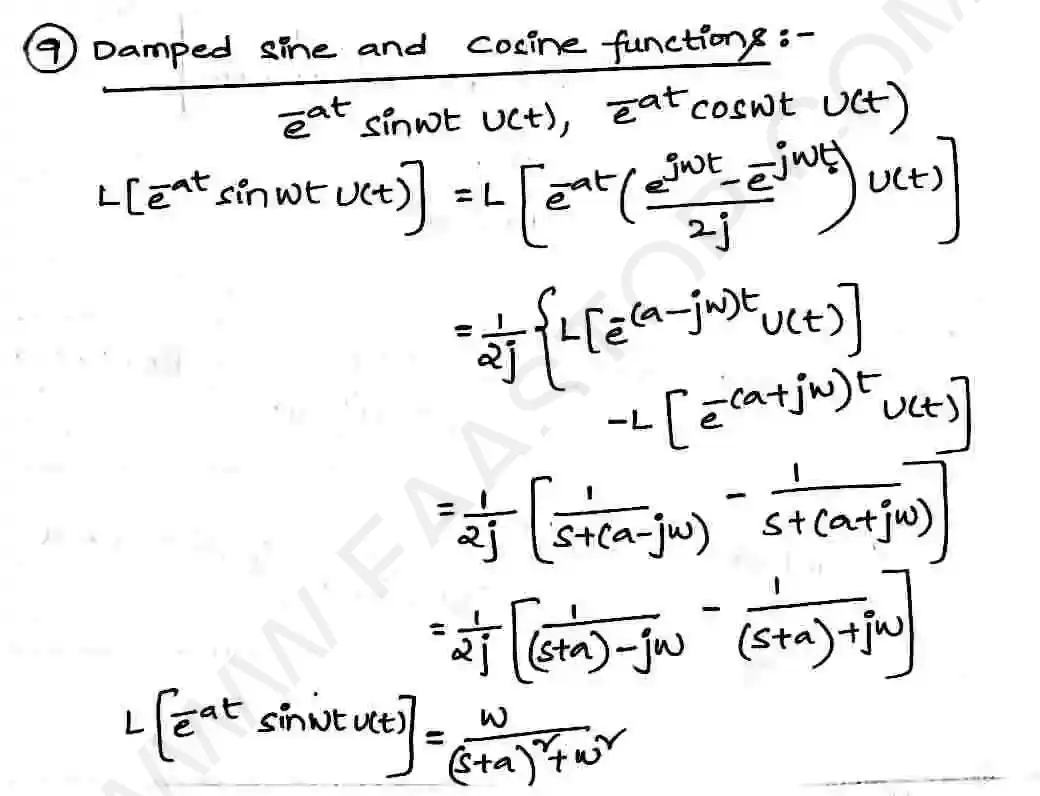 9 Damped sine and cosine functions :-
e^-at sinwt u(t), e^-at coswt u(t)
L[e^-at sinwt u(t)] = L[e^-at((e^jwt - e^-jwt)/2j) u(t)]
= 1/2j {L[e^-(a-jw)t u(t)]
-L[e^-(a+jw)t u(t)]
= 1/2j [1/(s+(a-jw)) - 1/(s+(a+jw))]
= 1/2j [1/((s+a)-jw) - 1/((s+a)+jw)]
L[e^-at sinwt u(t)] = w/((s+a)^2+w^2)